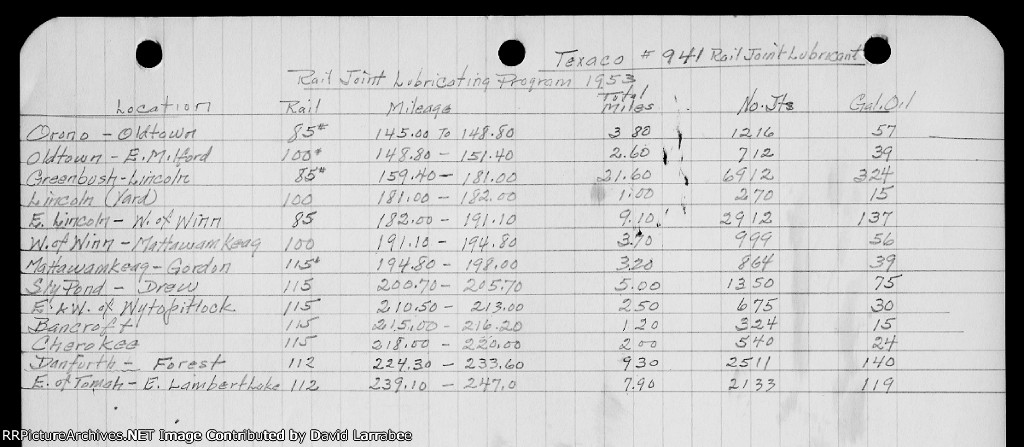 Texaco # 941 Rail Joint Lubricant
Rail Joint Lubricating Program 1953
Location Rail Mileage Total Miles No. Jts Gal. Oil
Orono - Oldtown 85# 145.00 To 148.80 3.80 1216 57
Oldtown - E. Milford 100# 148.80 - 151.40 2.60 712 39
Greenbush - Lincoln 85# 159.40 - 181.00 21.60 6912 324
Lincoln (Yard) 100 181.00 - 182.00 1.00 270 15
E. Lincoln - W. of Winn 85 182.00 - 191.10 9.10 2912 137
W. of Winn - Mattawamkeag 100 191.10 - 194.80 3.70 999 56
Mattawamkeag - Gordon 115# 194.80 - 198.00 3.20 864 39
Sly Pond - Drew 115 200.70 - 205.70 5.00 1350 75
E. & W. of Wytopitlock 115 210.50 - 213.00 2.50 675 30
Bancroft 115 215.00 - 216.20 1.20 324 15
Cherokee 115 218.00 - 220.00 2.00 540 24
Danforth - Forest 112 224.30 - 233.60 9.30 2511 140
E. of Tomah - E. Lambert Lake 112 239.10 - 247.0 7.90 2133 119
RRPictureArchives.NET Image Contributed by David Larrabee